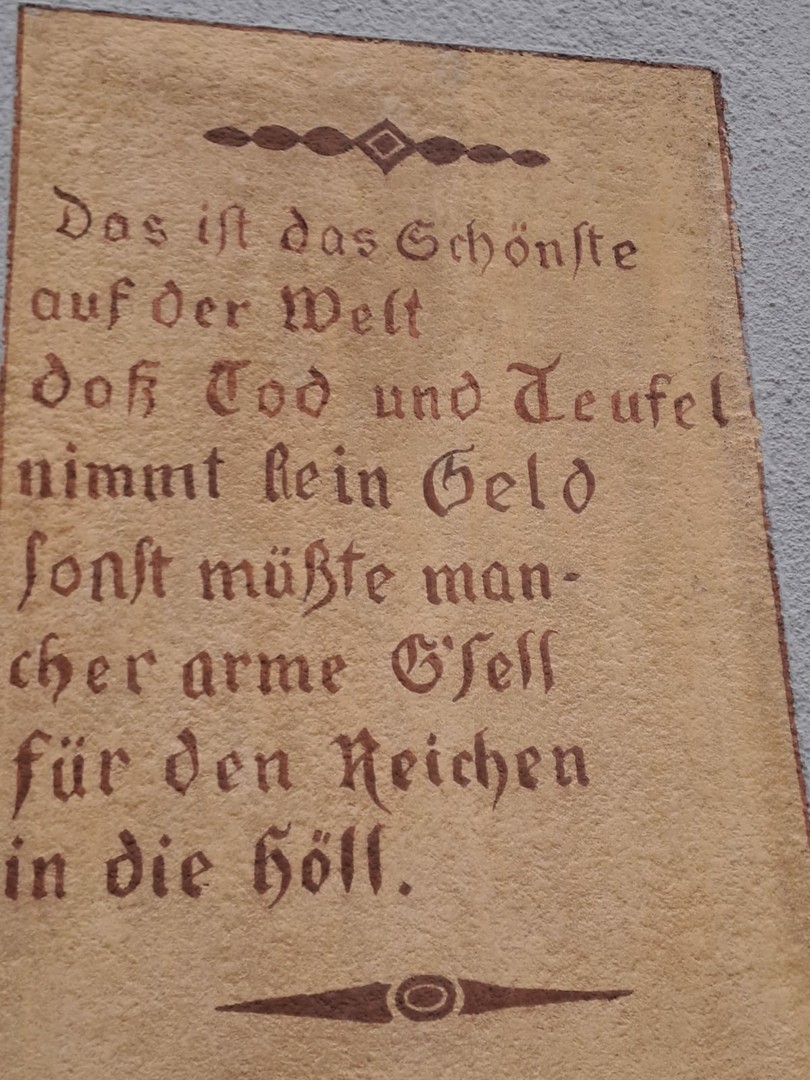 Das ist das Schönste
auf der Welt
daß Tod und Teufel
nimmt kein Geld
sonst müßte man-
cher arme G'sell
für den Reichen
in die Höll.